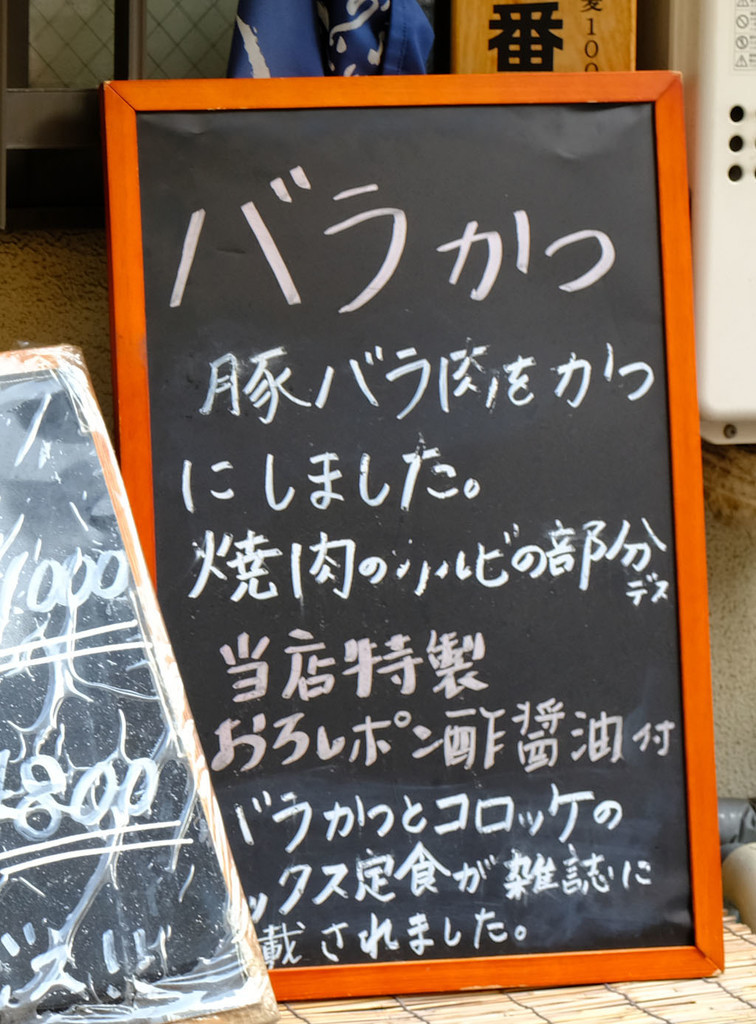 番
100
バラかつ
豚バラ肉をかつ
にしました。
焼肉のカルビの部分
デス
当店特製
おろしポン酢醤油付
バラかつとコロッケの
ックス定食が雑誌に
載されました。
1000
800